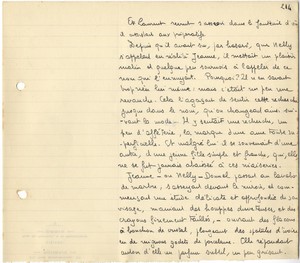 214
Et Laurent revint s'asseoir dans le fauteuil d'où il
assistait aux préparatifs.
Depuis qu'il avait su, par hasard, que Nelly
s'appelait en réalité Jeanne, il mettait un plaisir
malin et quelque peu sournois à l'appeler de ce
nom qui l'ennuyait. Pourquoi? Il n'en savait
trop rien lui-même; mais c'était un peu une
revanche. Cela l'agaçait de sentir cette recherche
jusque dans le nom, qu'on changeait ainsi suivant
la mode. Il y sentait une recherche, un
peu d'afféterie, la marque d'une âme
superficielle. Et malgré lui il se souvenait d'une
autre, d'une jeune fille simple et franche, qui elle
ne se fût jamais abaissée à ces niaiseries.
Jeanne — ou Nelly — passant au lavabo
de marbre, s'asseyait devant le miroir, et commençait
une étude délicate et approfondie de son
visage, maniant des houppes duveteuses, et des
crayons finement taillés, ouvrant des flacons
à bouchon de cristal, plongeant des spatules d'ivoire
en de mignons godets de porcelaine. Elle répandait
autour d'elle un parfum subtil, un peu grisant.